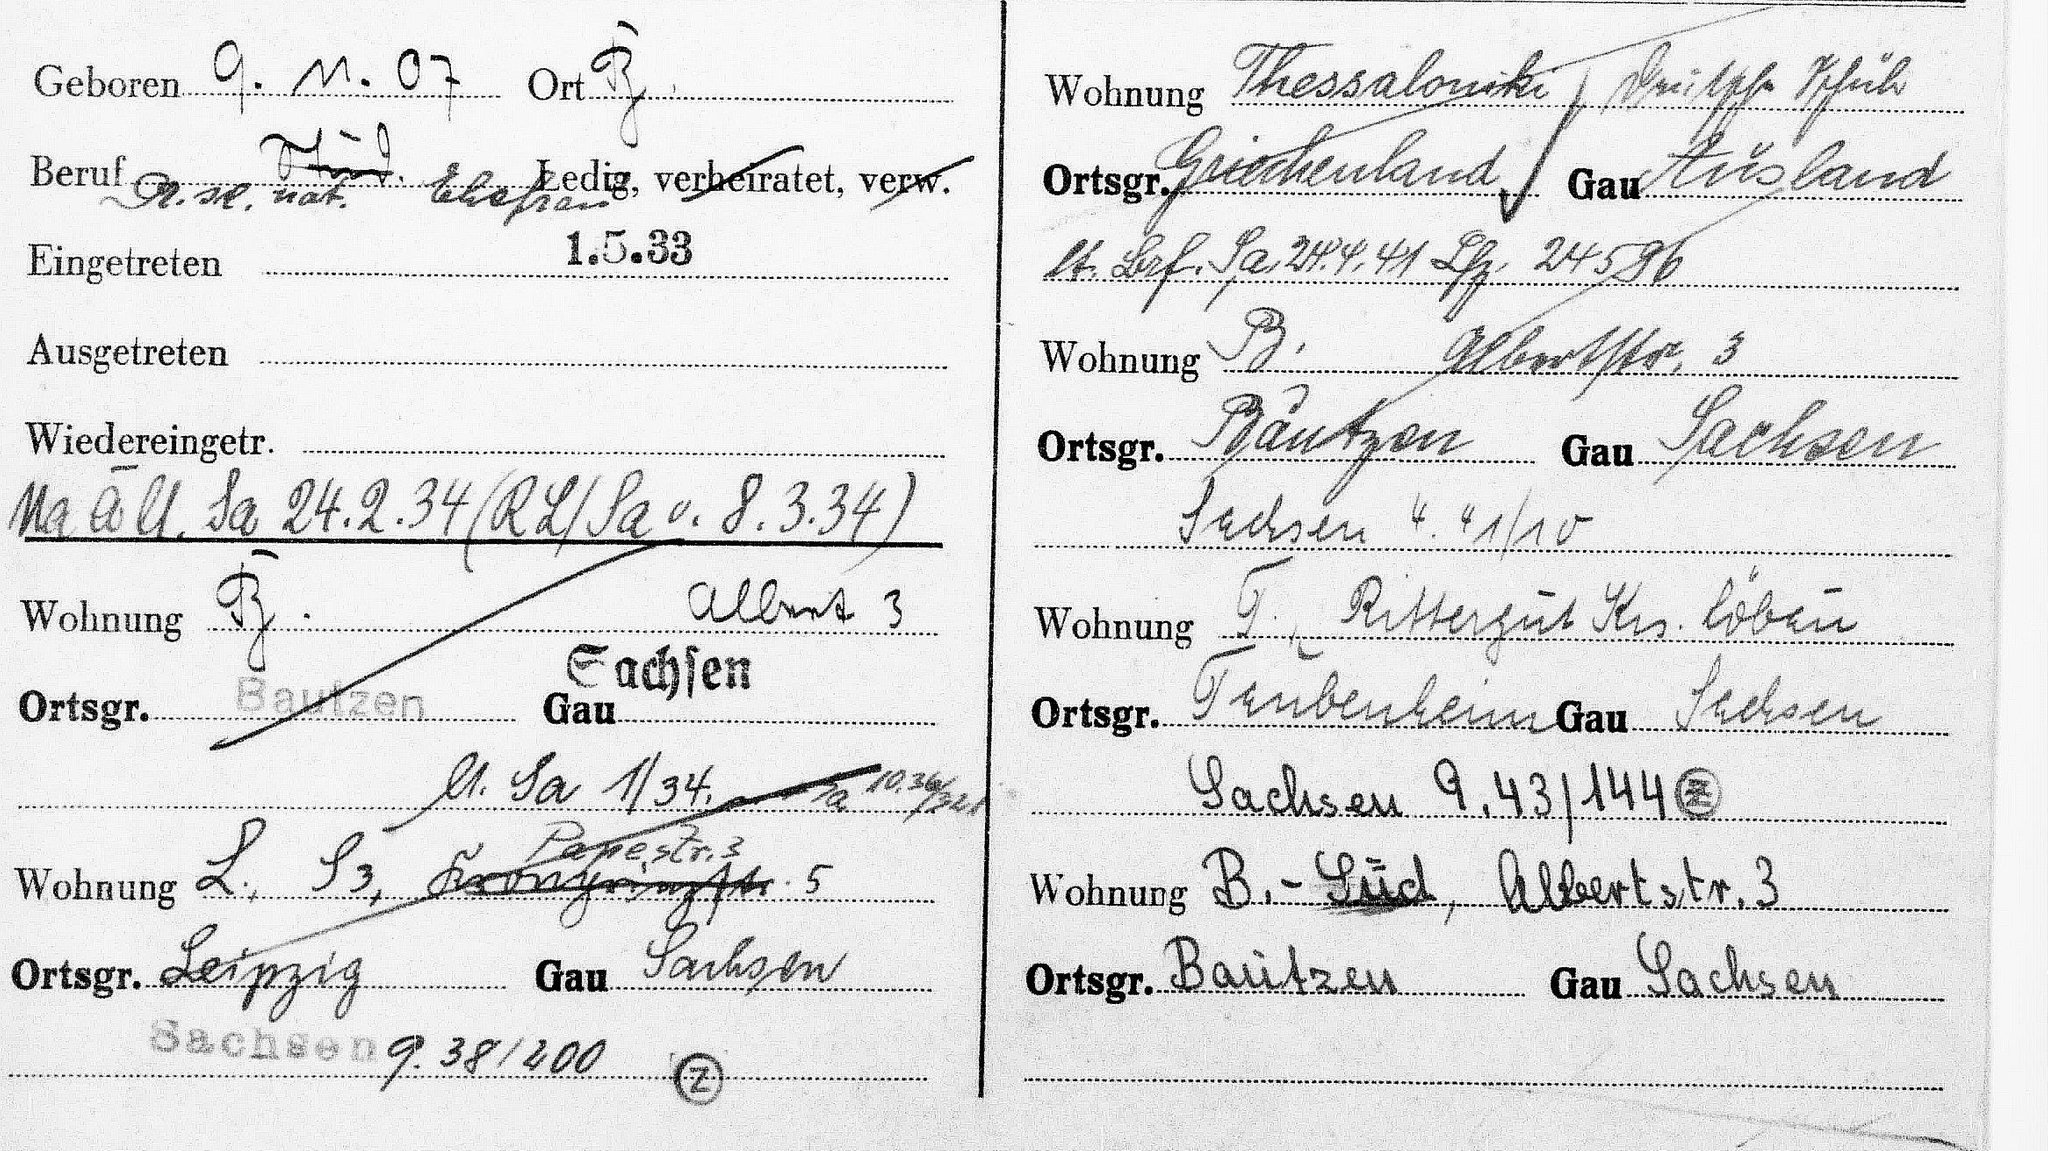 Geboren 9. 11. 07 Ort B.
Beruf Stud.
Dr. sc. nat. Ehefrau Ledig, verheiratet, verw.
Eingetreten 1.5.33
Ausgetreten
Wiedereingetr.
Ma Ü. Sa 24.2.34 (RL/Sa v. 8.3.34)
Wohnung B. Albert 3
Ortsgr. Bautzen Gau Sachsen
U. Sa 1/34.
Papestr. 3
Wohnung L., S3, Kronprinzstr. 5
Ortsgr. Leipzig Gau Sachsen
Sachsen 9.38/200 Z
Wohnung Thessaloniki, Deutsche Schule
Ortsgr. Griechenland Gau Ausland
lt. Brf. Sa. 24.4.41 Lfz. 24596
Wohnung B. Albertstr. 3
Ortsgr. Bautzen Gau Sachsen
Sachsen 4.41/10
Wohnung T., Rittergut Krs. Löbau
Ortsgr. Taubenheim Gau Sachsen
Sachsen 9.43/144 Z
Wohnung B.-Süd, Albertstr. 3
Ortsgr. Bautzen Gau Sachsen